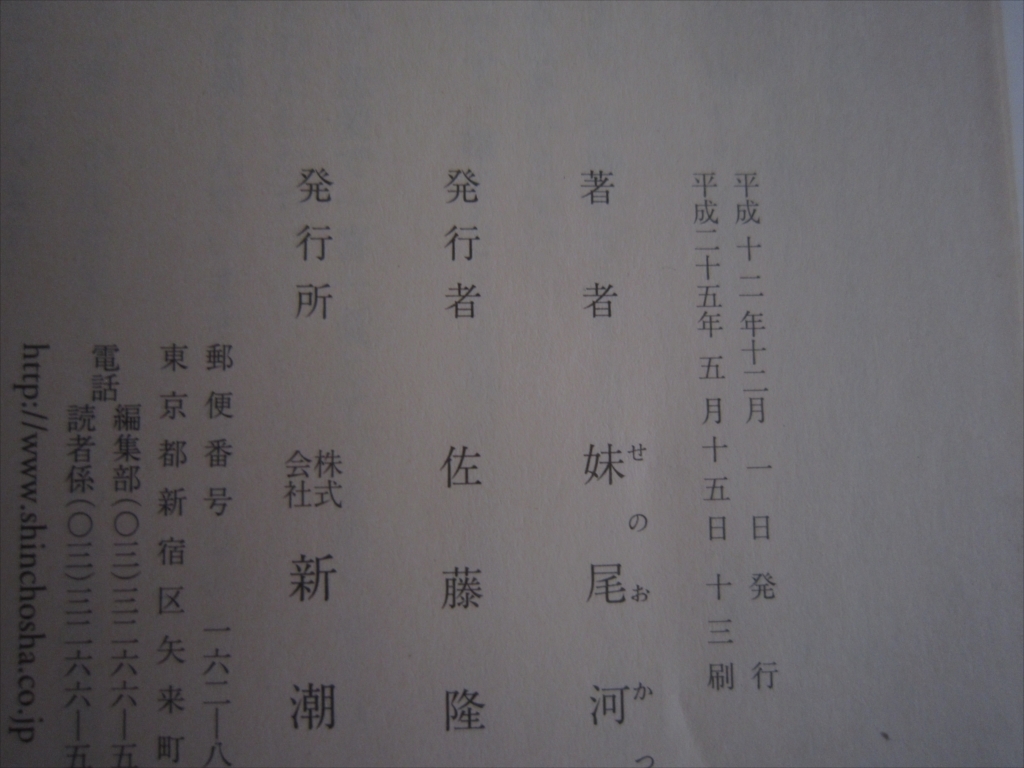 平成十二年十二月一日発行
平成二十五年五月十五日十三刷
せのおかっ
著者 妹尾河
発行者 佐藤隆
発行所 株式会社 新潮
郵便番号 一六二―八
東京都新宿区矢来町
電話 編集部(〇三)三二六六―五
読者係(〇三)三二六六―五
http://www.shinchosha.co.jp